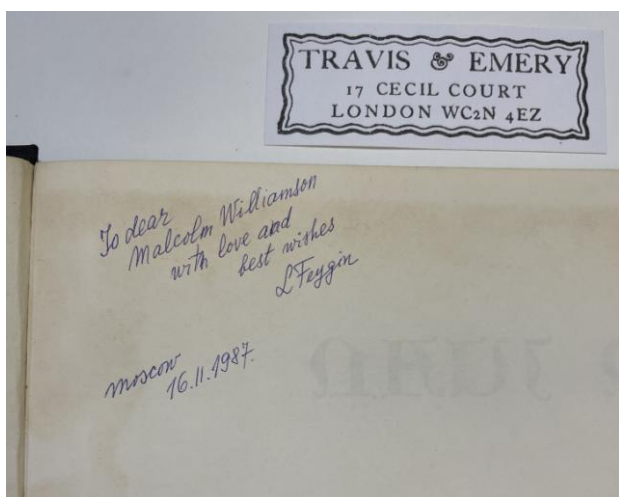 TRAVIS & EMERY
17 CECIL COURT
LONDON WC2N 4EZ
To dear
Malcolm Williamson
with love and
best wishes
L Feygin
Moscow
16.11.1987.